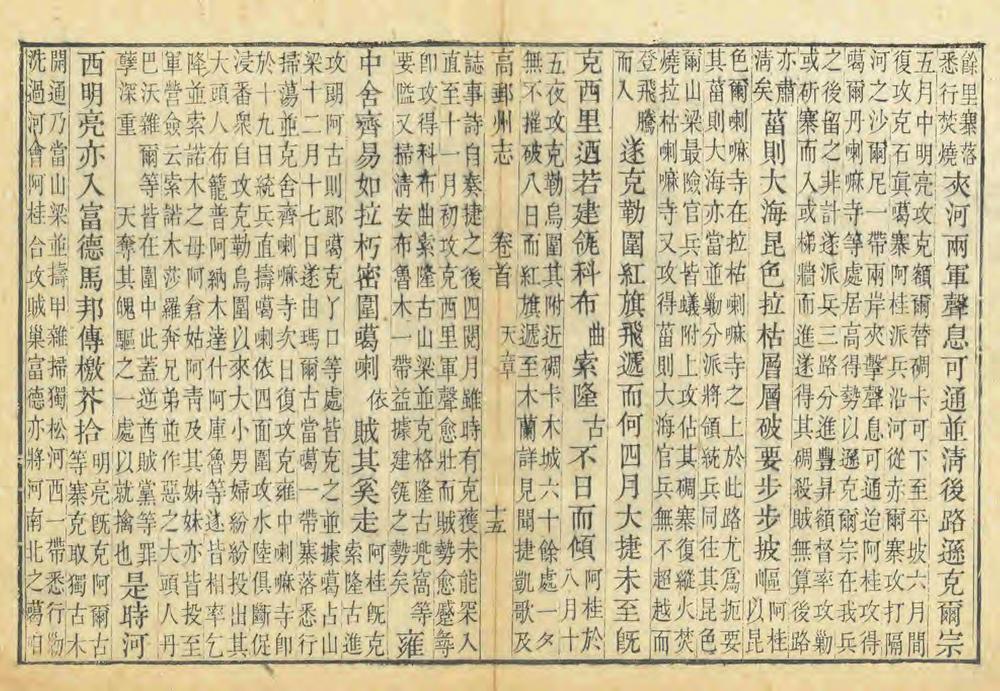 餘里寨落悉行焚燒夾河兩軍聲息可通並清後路遜克爾宗
五月中明亮攻克額爾替碉卡可下至平坡六月間
復攻克石真噶寨阿桂派兵沿河從赤爾寨攻打隔
河之沙爾尼一帶兩岸夾擊聲息可通迨阿桂攻得
噶爾丹喇嘛寺等處居高得勢以遜克爾宗在我兵
之後留之非計遂派兵三路分進豐昇額督率攻勦
或斫寨而入或梯牆而進遂得其碉殺賊無算後路
亦肅清矣菑則大海昆色拉枯層層破要步步披嶇阿桂以昆
色爾喇嘛寺在拉枯喇嘛寺之上於此路尤爲扼要
其菑則大海亦當並勦分派將領統兵同往其昆色
爾山梁最險官兵皆蟻附上攻佔其碉寨復縱火焚
燒拉枯喇嘛寺又攻得菑則大海官兵無不超越而
登飛騰而入遂克勒圍紅旗飛遞而何四月大捷未至旣
克西里迺若建瓴科布曲索隆古不日而傾阿桂於八月十
五夜攻克勒烏圍其附近碉卡木城六十餘處一夕
無不摧破八日而紅旗遞至木蘭詳見聞捷凱歌及
高郵州志 卷首 天章 十五
誌事詩自奏捷之後四閱月雖時有克獲未能罙入
直至十一月初攻克西里軍聲愈壯而賊勢愈蹙每
卽攻得科布曲索隆古山梁並克格隆古兜窩等
要隘又掃清安布魯木一帶益據建瓴之勢矣雍
中舍齊易如拉朽密圍噶喇依賊其奚走阿桂旣克索隆古進
攻朗阿古則耶噶克丫口等處皆克之並據噶占山
梁十二月十七日遂由瑪爾古當噶一帶寨落悉行
掃蕩並克舍齊喇嘛寺次日復攻克雍中喇嘛寺卽
於十九日統兵直擣噶喇依四面圍攻水陸俱斷促
浸番衆自攻克勒烏圍以來大小男婦紛紛投出其
大頭人布籠普阿納木達什阿庫魯等遂皆相率乞
降並索諾木之母阿倉姑阿青及其姊妹亦皆投至
軍營僉云索諾木莎羅奔兄弟並作惡之大頭人丹
巴沃雜爾等皆在圍中此蓋逆酋賊黨等罪
孽深重 天奪其魄驅之一處以就擒也是時河
西明亮亦入富德馬邦傳檄芥拾明亮旣克阿爾古等寨克取獨古木
開通乃當山梁並擣甲雜掃獨松河西一帶悉行
洗過河會阿桂台攻賊巢富德亦將河南北之噶咱